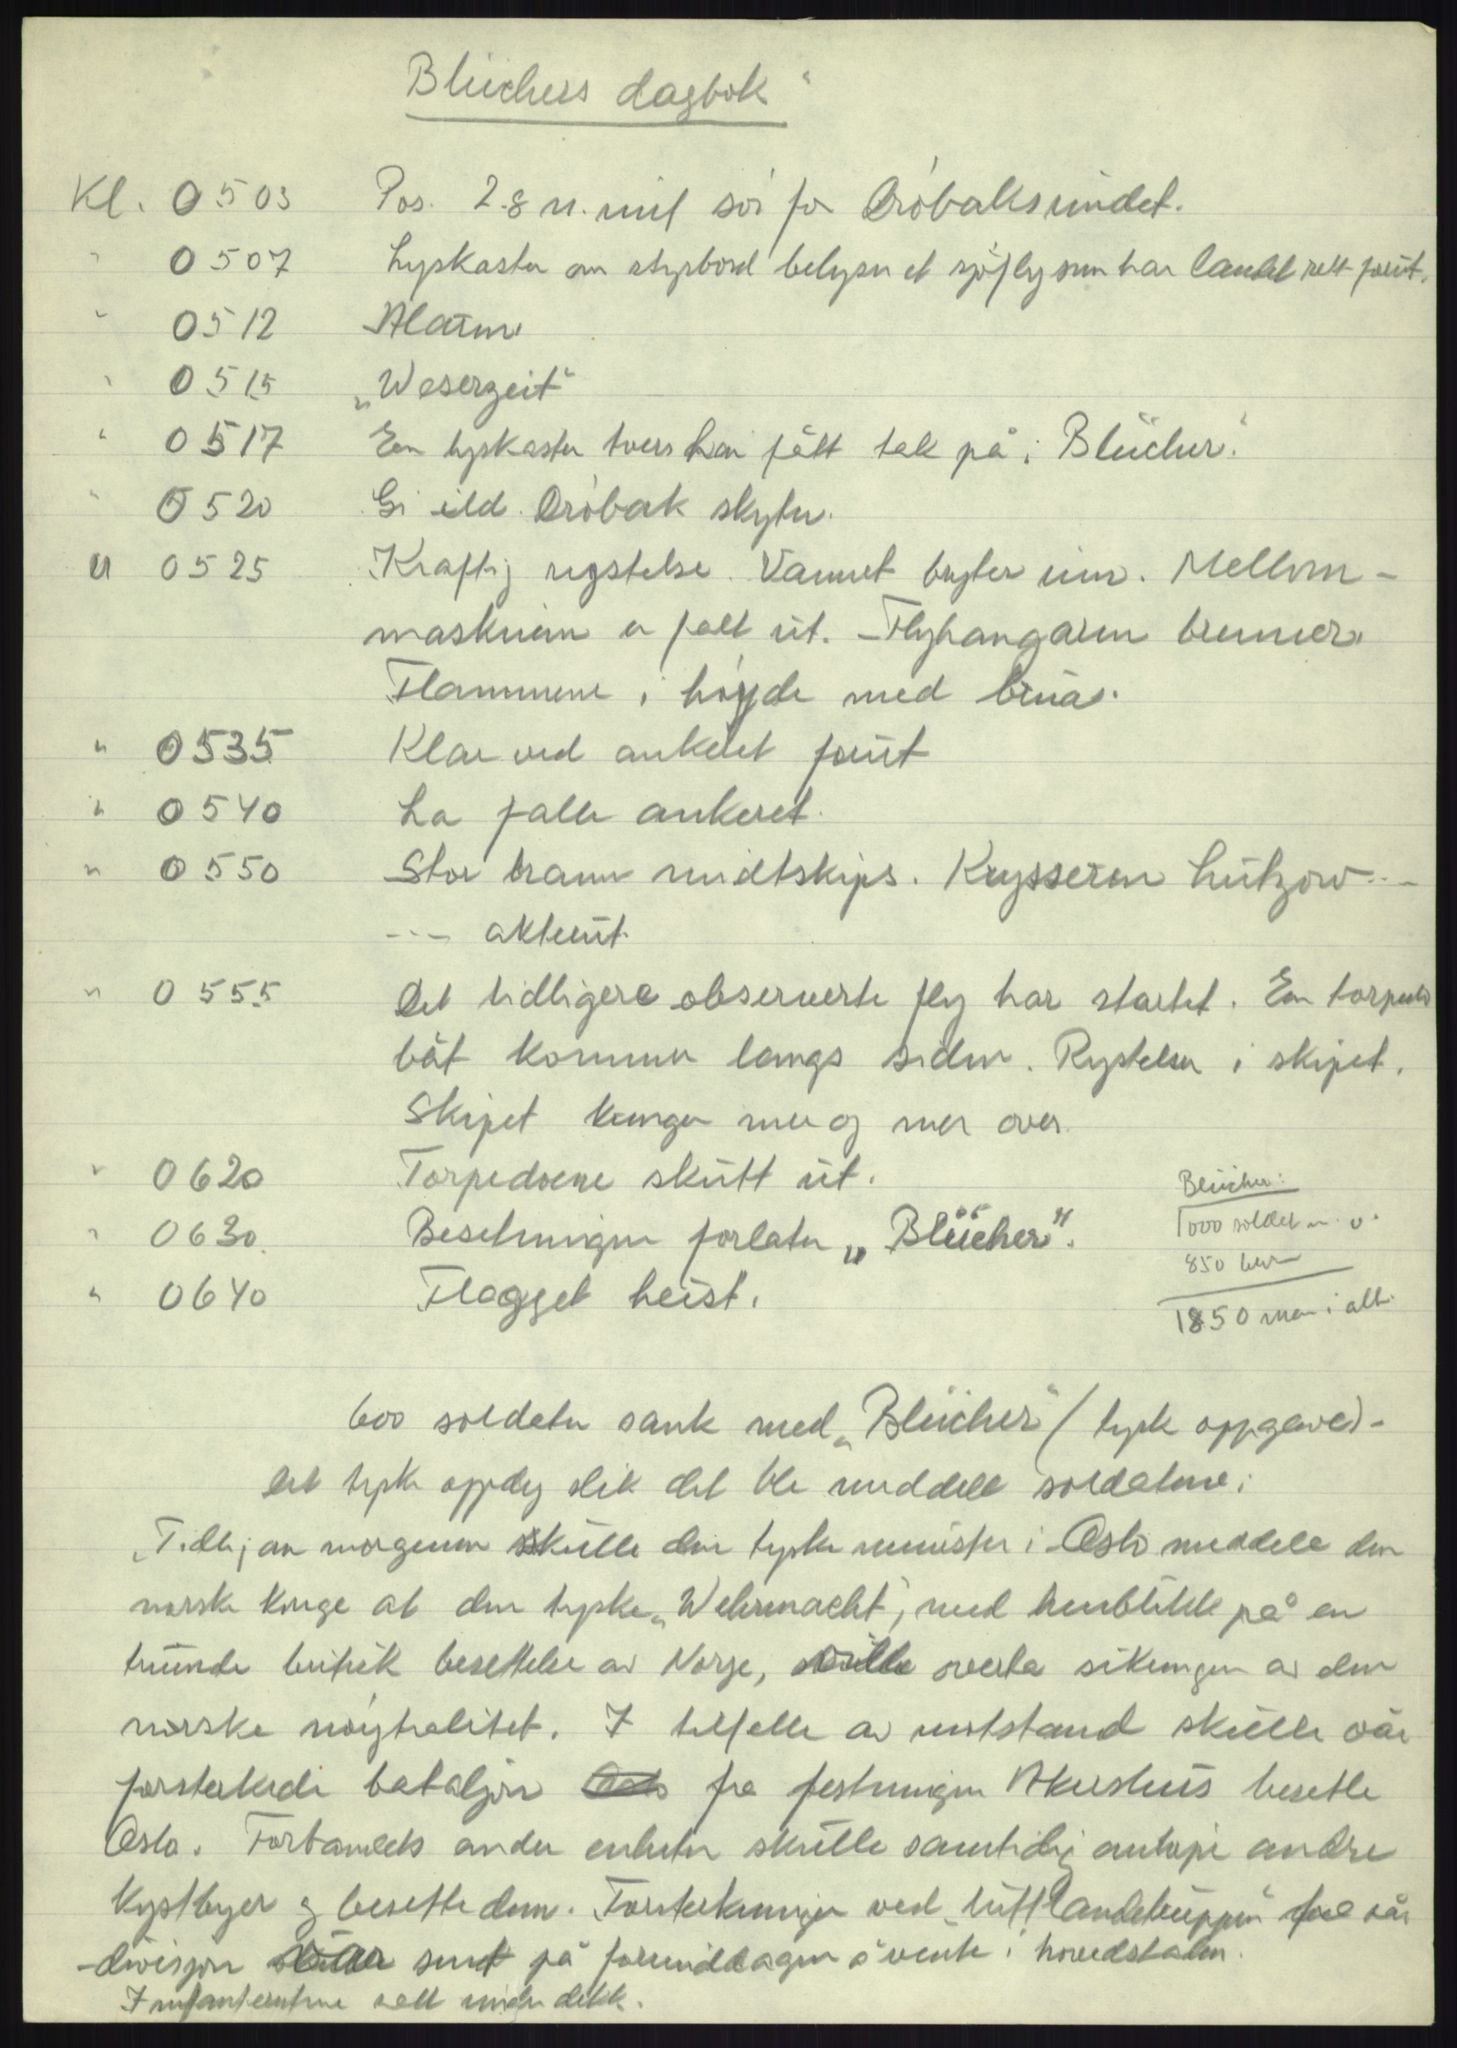 Blüchers dagbok"
Kl. 0503 Pos. 2.8 n. mil sör for Dröbaksundet.
" 0507 Lyskaster om styrbord belyser et sjöfly som har landet rett forut.
" 0512 Alarm
" 0515 „Weserzeit"
" 0517 En lyskaster tvers har fått tak på „Blücher".
" 0520 Gi ild. Dröbak skyter.
" 0525 Kraftig rystelse. Vannet bryter inn. Mellom-
maskinen er falt ut. Flyhangaren brenner.
Flammene i höyde med bruas.
" 0535 Klar ved ankeret forut
" 0540 La falle ankeret.
" 0550 Stor brann midtskips. Krysseren Lützow ---
--- akterut.
" 0555 Det tidligere observerte fly har startet. En torpedo
båt kommer langs siden. Rystelser i skipet.
Skipet krenger mer og mer over
" 0620 Torpedoene skutt ut.
" 0630. Besetningen forlater „Blücher".
" 0640 Flagget heist.
Blücher:
1000 soldater
850 bes
1850 man i alt.
600 soldater sank med „Blücher" (tysk oppgave) -
Det tyske oppdrag slik det ble meddelt soldatene:
„Tidlig om morgenen skulle den tyske minister i Oslo meddele den
norske konge at den tyske „Wehrmacht", med henblikk på en
truende britisk besettelse av Norge, ville overta sikringen av den
norske nöytralitet. I tilfelle av motstand skulle vår
forsterkede bataljon fra festningen Akershus besette
Oslo. Forbandets andre enheter skulle samtidig anlöpe andre
kystbyer og besette dem. Forsterkninger ved „Luftlandetruppen" fra vår
divisjon sent på formiddagen å vente i hovedstaden.
Infanteristene holdt under dekk.